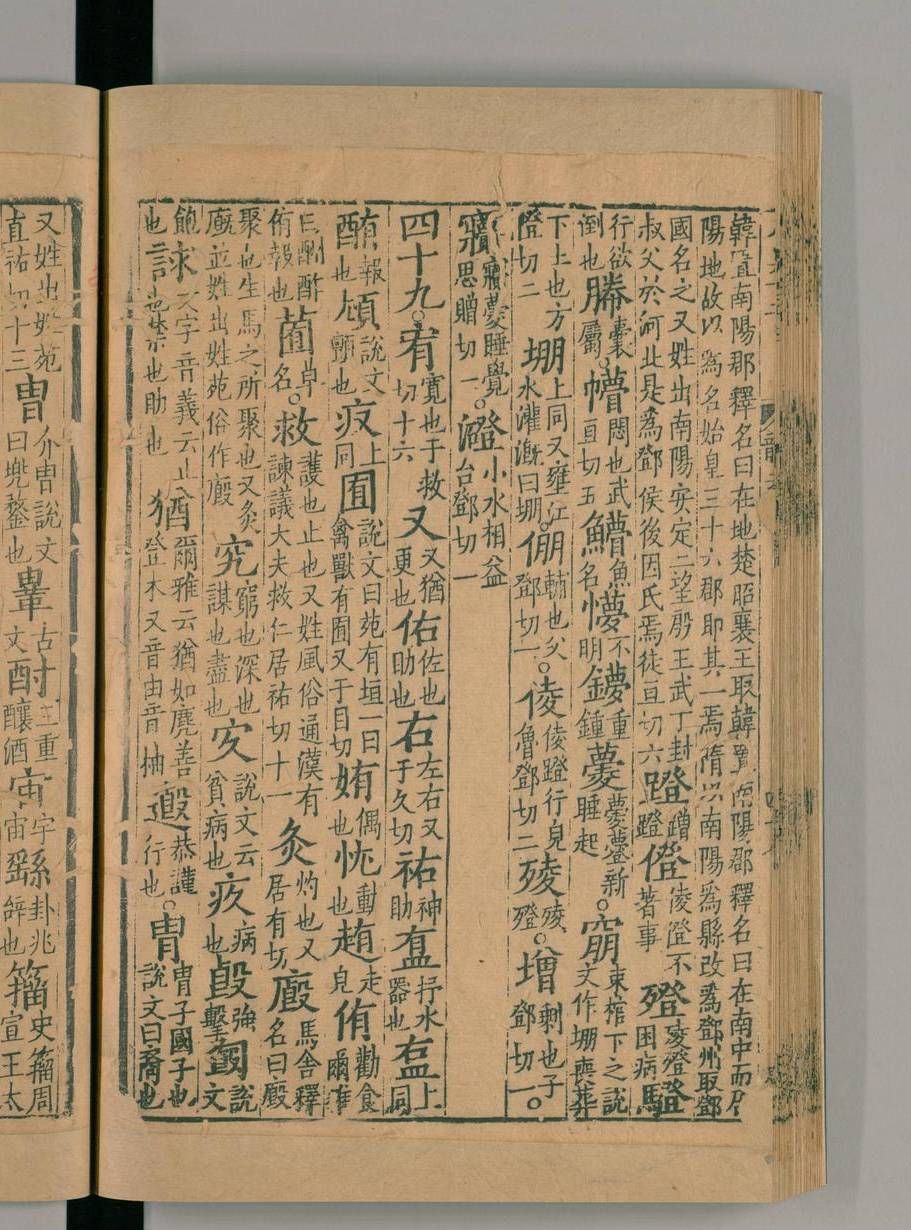 南陽郡釋名曰在地楚昭襄王取韓置南陽郡釋名曰在南中而居陽地故以為名始皇三十六郡即其一焉隋以南陽為縣改為鄧州取鄧
國名之又姓出南陽安定二望殷王武丁封叔父於河北是為鄧侯後因氏焉徒亘切六蹬蹭蹬僜倰僜不著事困病
行欲倒也幐囊屬○懵悶也武亘切五鱛魚名懜不明鐼重鍾夢夢䒁新睡起○堋束棺下之說文作堋喪葬
下上也方隥切二堋上同又壅江水灌溉曰堋○倗輔也父鄧切一○倰倰蹬行皃魯鄧切二○增剩也子鄧切一○
睡覺思贈切一○瀓小水相益台鄧切一
四十九○宥寬也于救切十六又又猶更也佑佐也助也右左右又于久切祐神助𥁓抒水器也上同
酭報也頄說文顫也疫上同囿說文曰苑有垣一曰禽獸有囿又于目切姷偶也忧動也䞥走皃侑勸食爾雅
曰酬酢侑報也䔰草名○救護也止也又姓風俗通漢有諫議大夫救仁居祐切十一灸灼也又居有切廄馬舍釋名曰廄
聚也生馬之所聚也又灸廄並姓出姓苑俗作廐究窮也深也謀也盡也㝌說文云貧病也疚病也㲃強擊匓說文
飽也䛮文字音義云止也禁也助也猶爾雅云猶如麂善登木又音由音柚䢮恭謹行也○胄胄子國子也說文曰裔也
又姓出姓苑直祐切十三冑介冑說文曰兜鍪也䩜古文酎三重釀酒宙宇宙䌛卦兆辭也籀史籀周宣王太